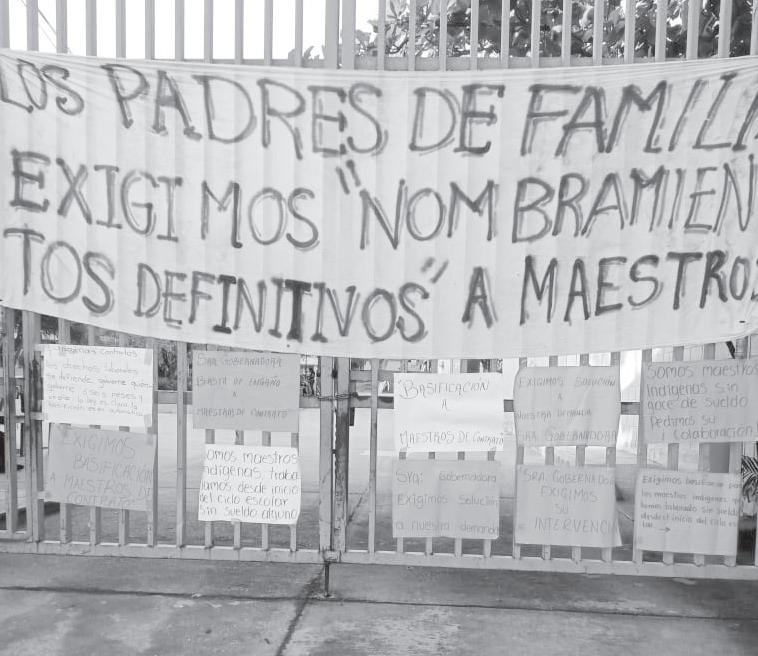 LOS PADRES DE FAMILIA
EXIGIMOS "NOMBRAMIEN
TOS DEFINITIVOS" A MAESTROS
contratos
los derechos laborales
se defiende, gobierne quien
gobierne. 6 meses y
la ley es clara, la
EXIGIMOS
BASIFICACIÓN
A MAESTROS DE
CONTRATO
SRA. GOBERNADORA
BASTA DE ENGAÑO
A
MAESTROS DE CONTRATO
omos maestros
indígenas, traba
jamos desde inicio
del ciclo escolar
sin sueldo alguno
"BASIFICACIÓN
A
MAESTROS DE CONTRATO
Sra. Gobernadora
Exigimos Solución
a nuestra demanda
EXIGIMOS SOLUCIÓN
A
NUESTRA DEMANDA
SRA. GOBERNADORA
SRA. GOBERNADO
EXIGIMOS
SU
INTERVENCI
Somos maestros
Indígenas sin
goce de sueldo
Pedimos su
Colaboración
Exigimos basificación por
los maestros indígenas
hemos laborado sin sueldo
desde el inicio del ciclo es